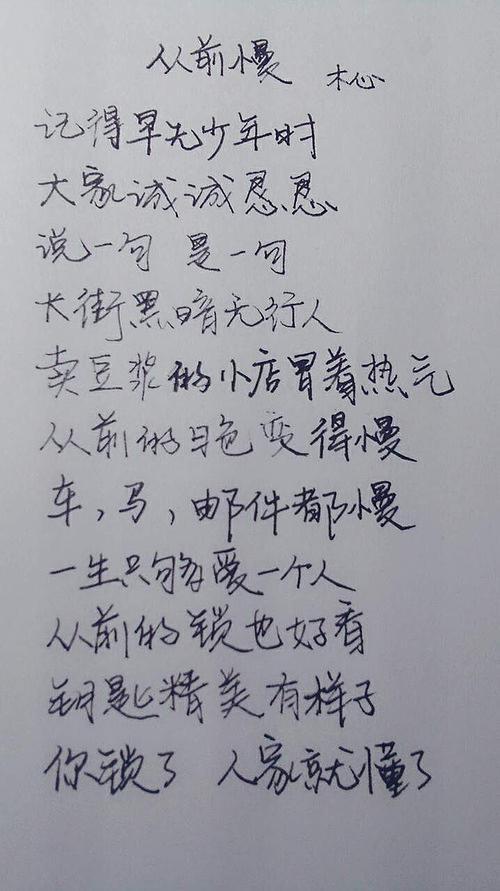 从前慢 木心
记得早先少年时
大家诚诚恳恳
说一句 是一句
长街黑暗无行人
卖豆浆的小店冒着热气
从前的日色变得慢
车，马，邮件都慢
一生只够爱一个人
从前的锁也好看
钥匙精美有样子
你锁了 人家就懂了